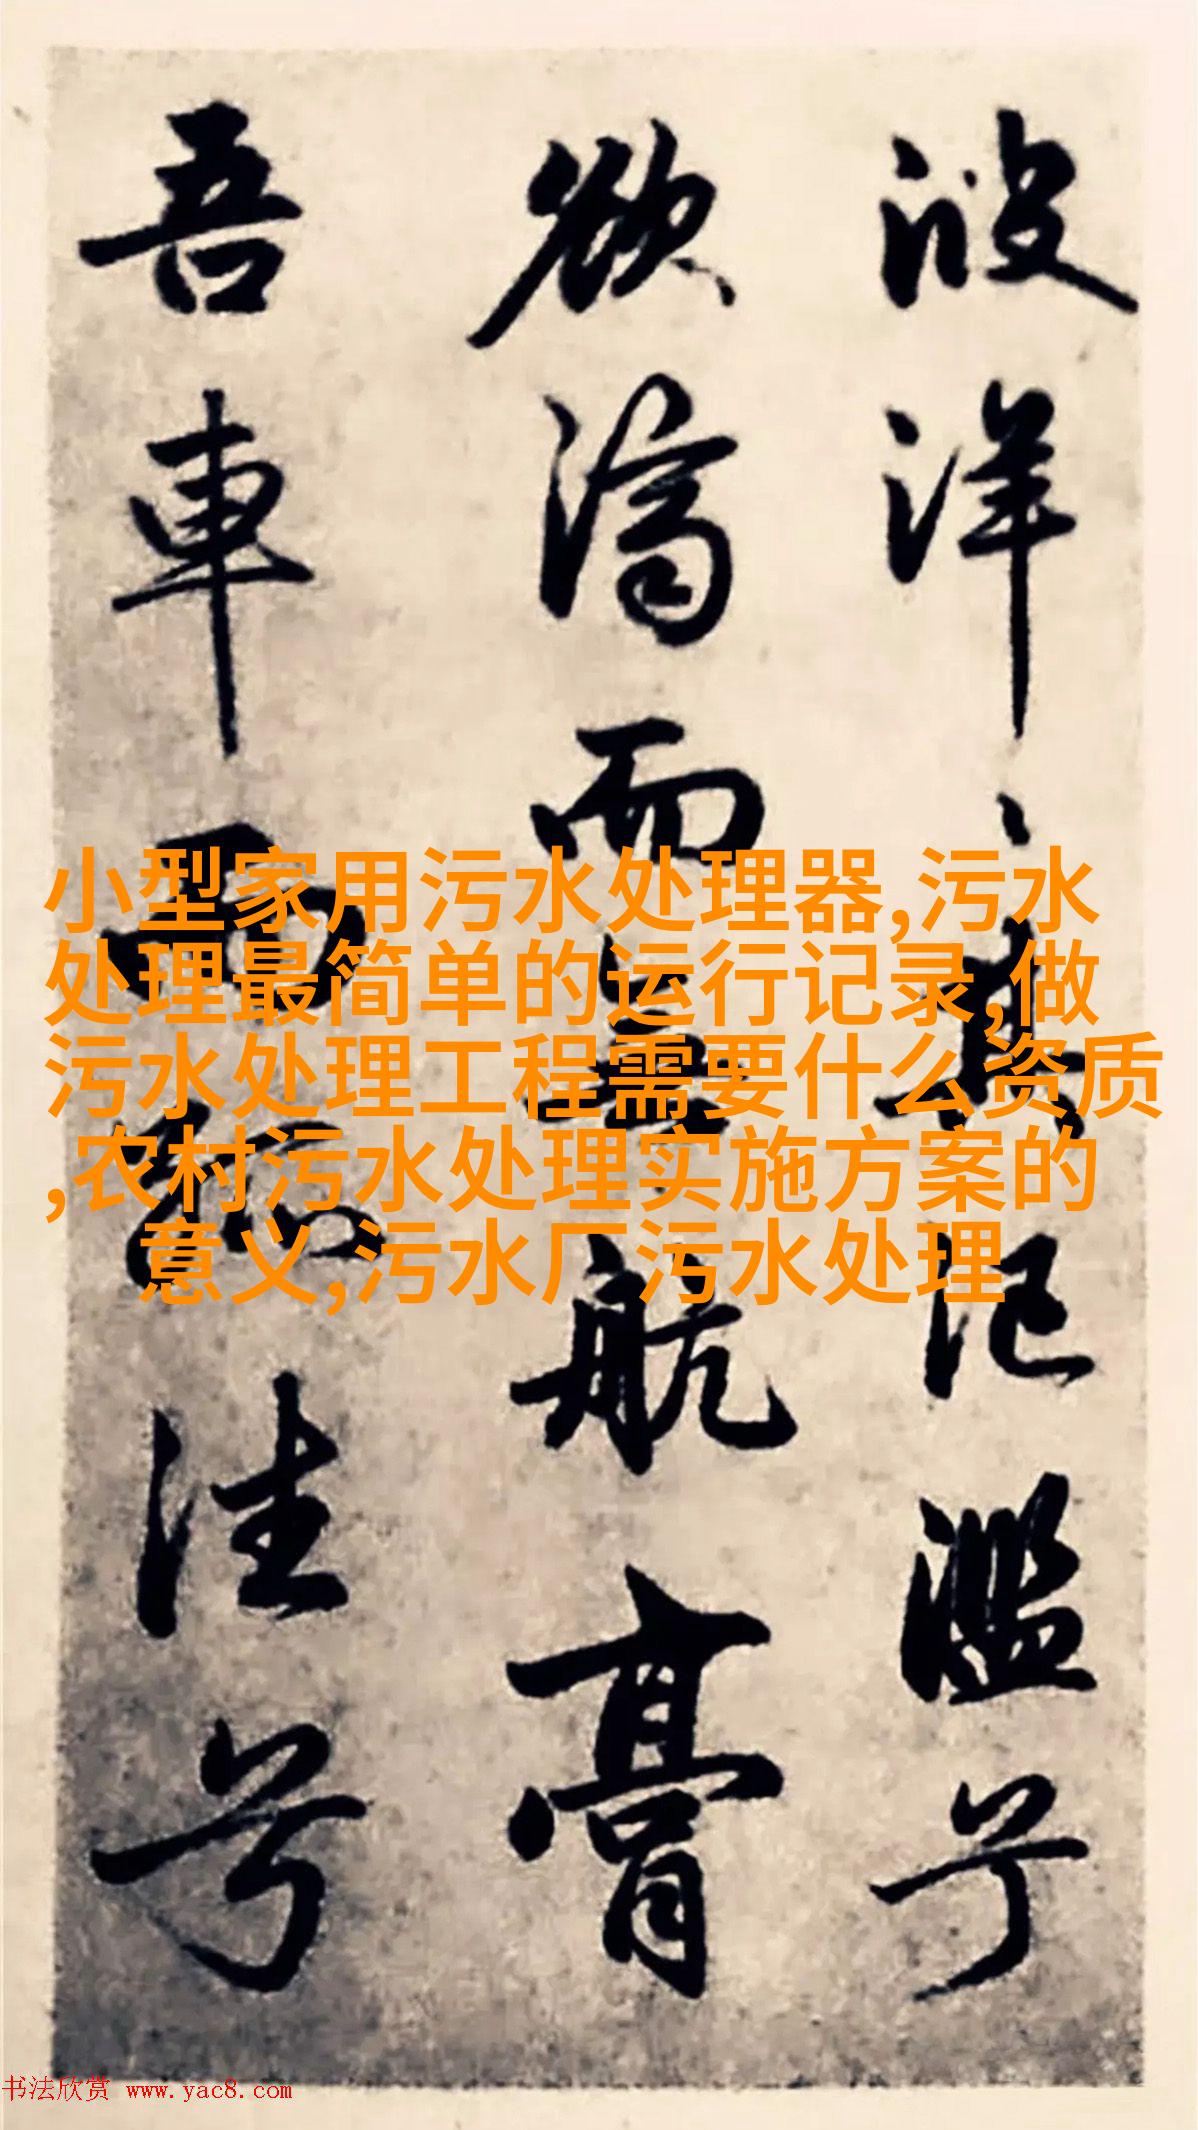 波洋其氾濫兮
欲濟而無航膏
吾車而秣
往兮
小型家用污水处理器,污水
处理最简单的运行记录,做
污水处理工程需要什么资质
,农村污水处理实施方案的
意义,污水厂污水处理
书法欣赏 www.yac8.com